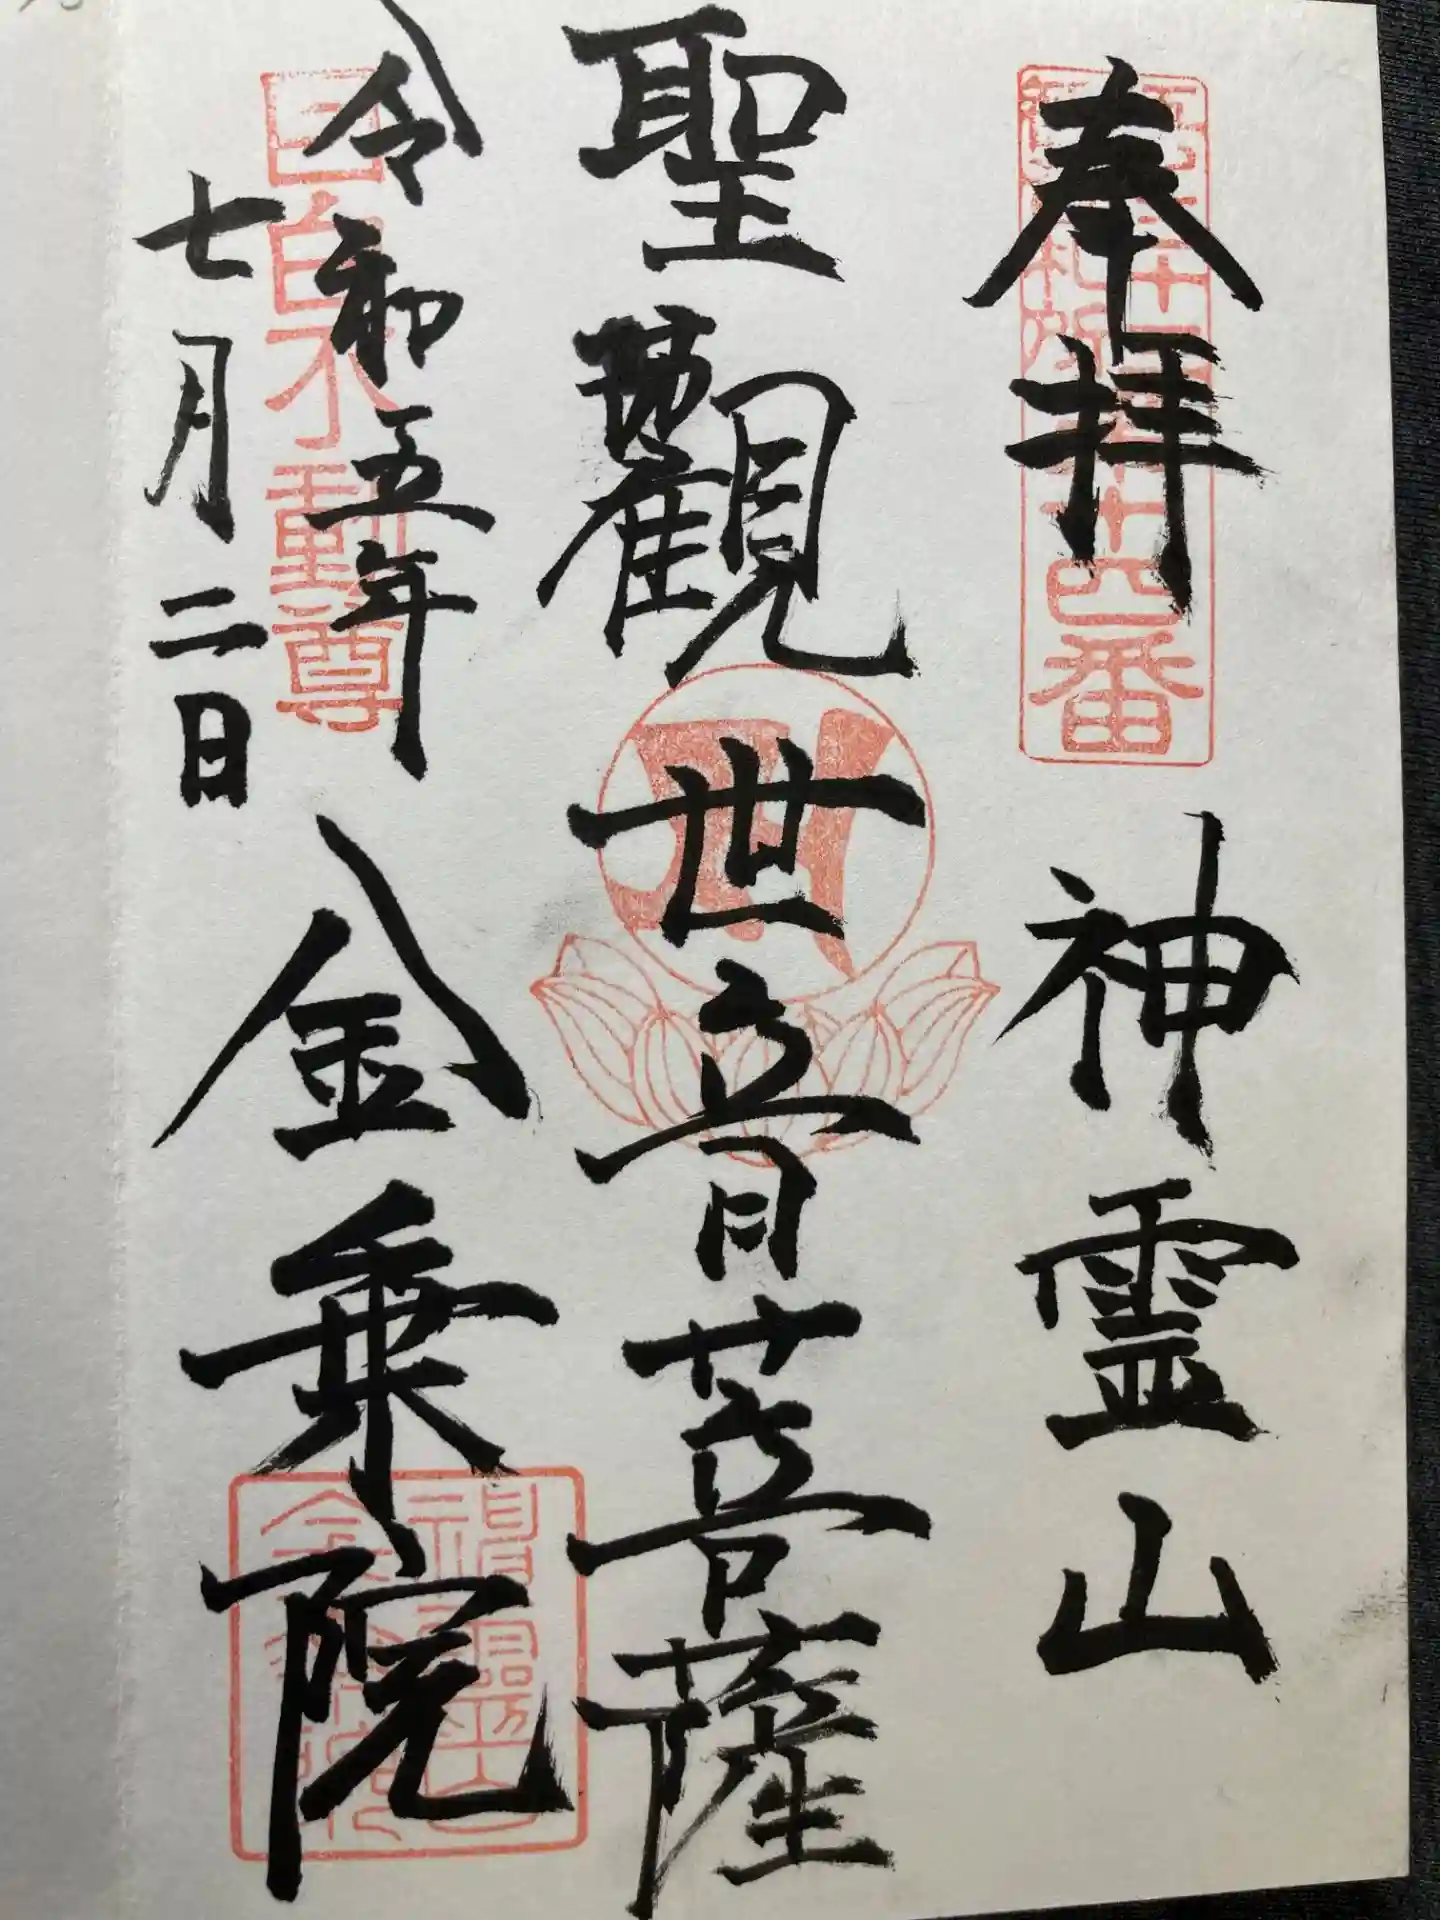 奉拝 神霊山
聖觀世音菩薩
令和五年
七月二日
金乗院
目白不動尊
十四番
神霊山
金乗院